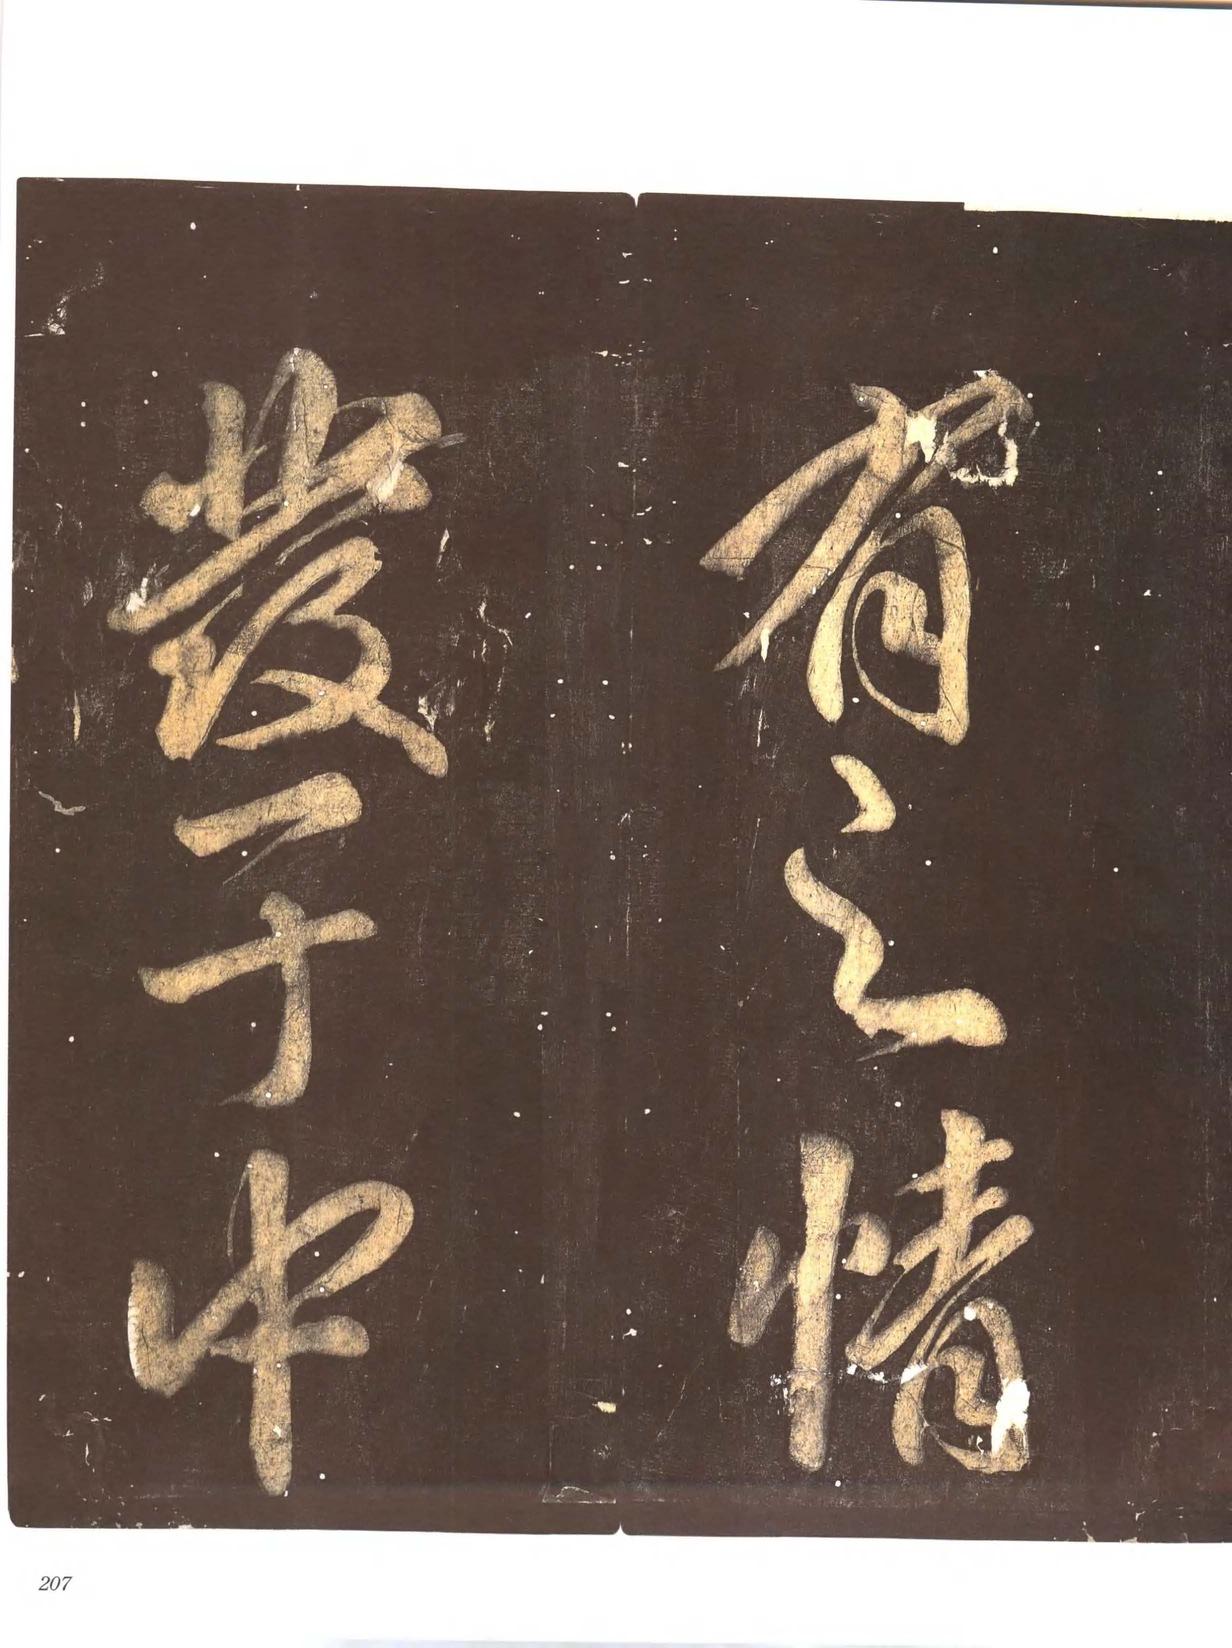 有之情
發于中
207